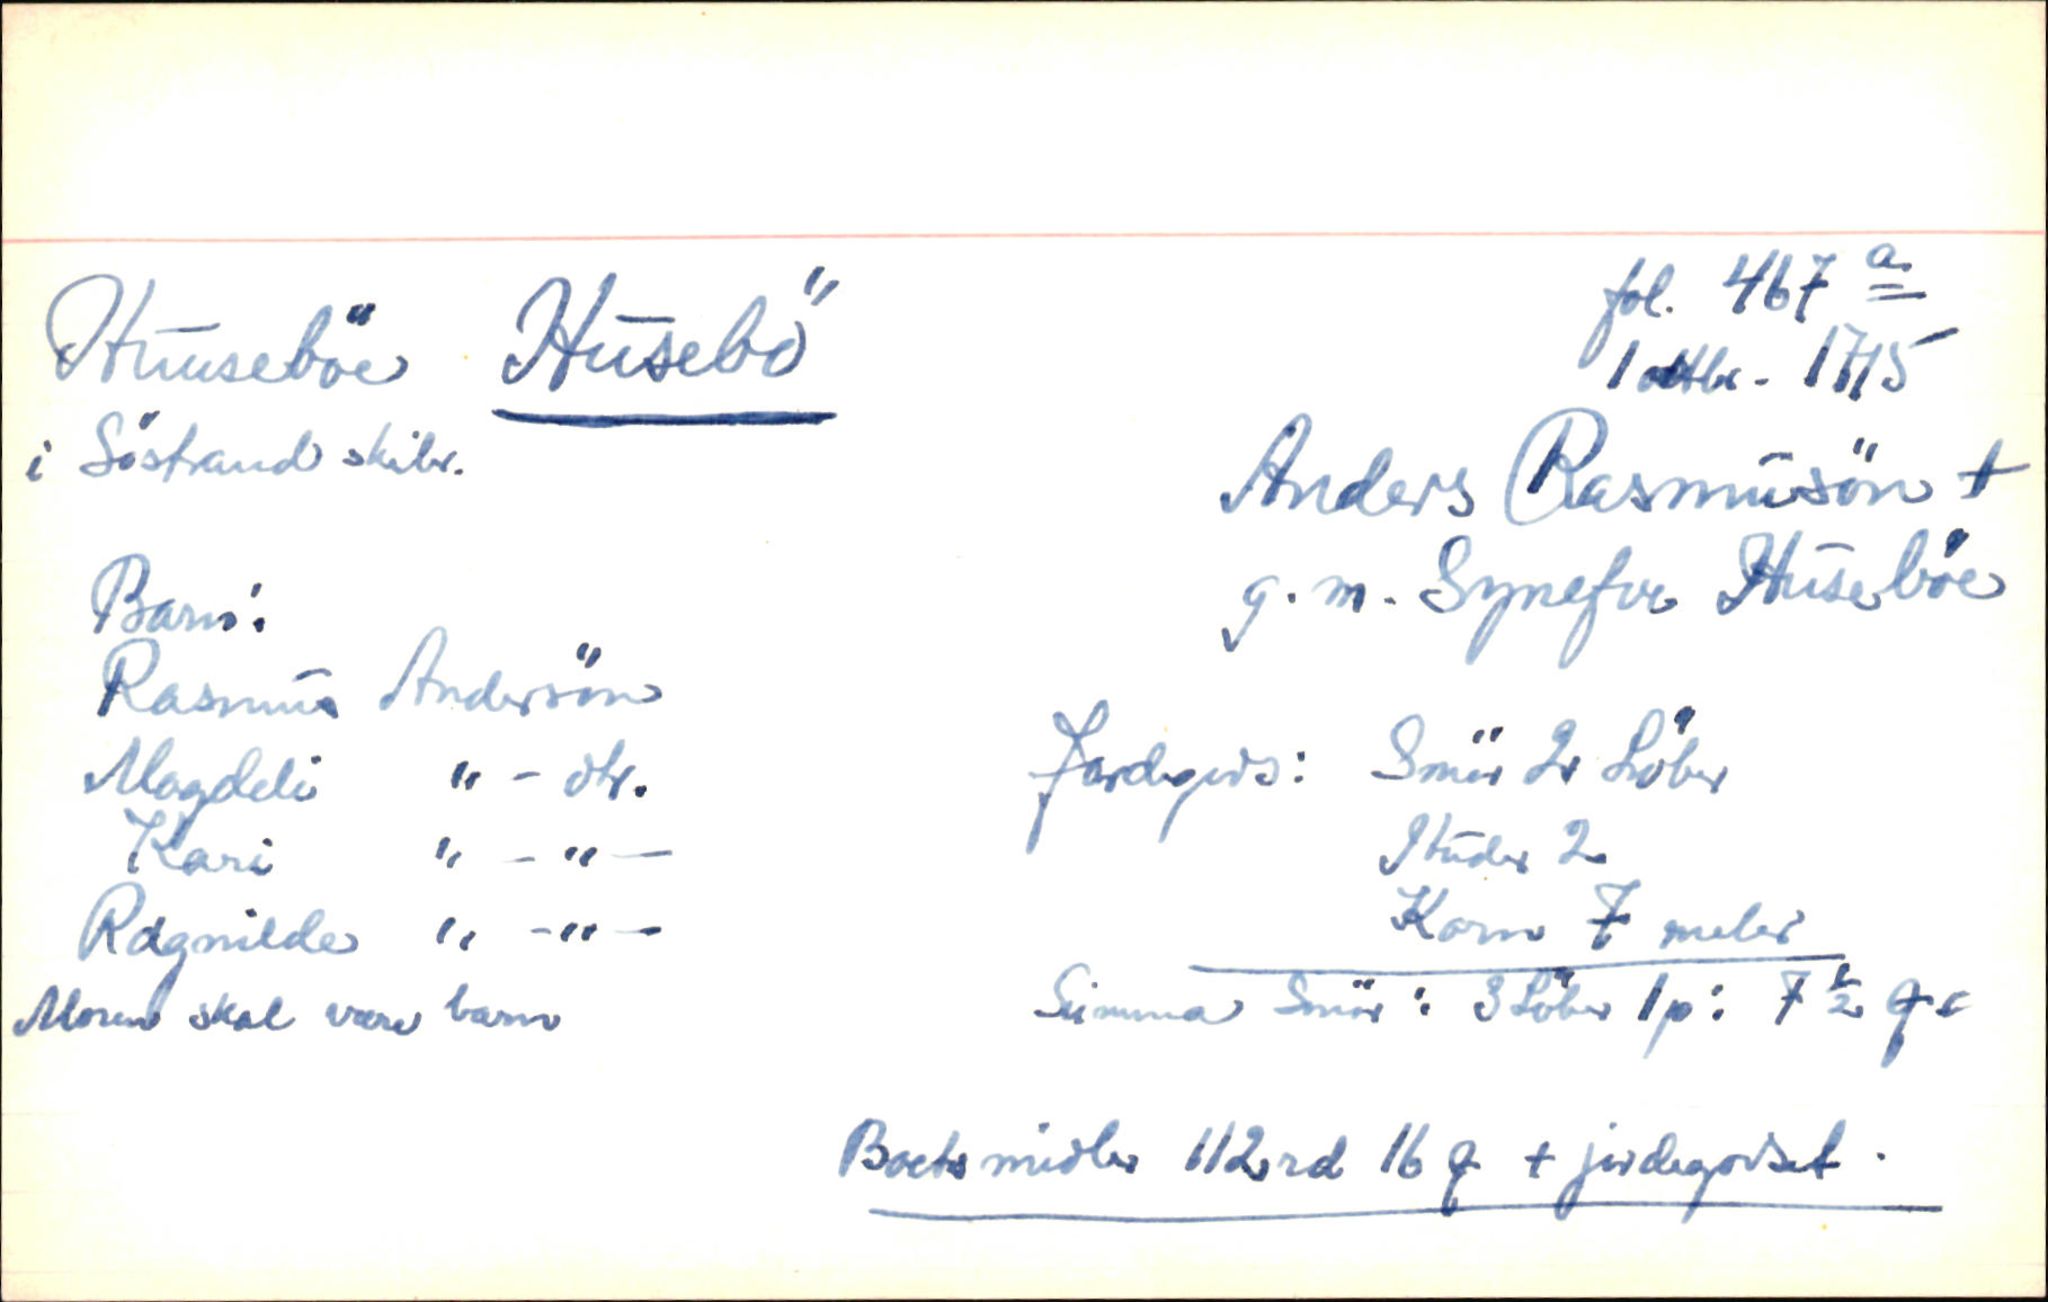 Huuseböe Husebö
fol. 467 a
1 oktbr. 1715
i Söstrand skibr.
Anders Rasmusön +
g. m. Synefve Huseböe
Barn:
Rasmus Andersön
Magdeli " - dtr.
Kari " - " -
Ragnilde " - " -
Moren skal være barn
Jordegods: Smör 2 Löber
Huder 2
Korn 7 meler
Summa Smör: 3 Löber 1 p: 7 ½
Boets midler 112 rd 16 β + jordegodset.